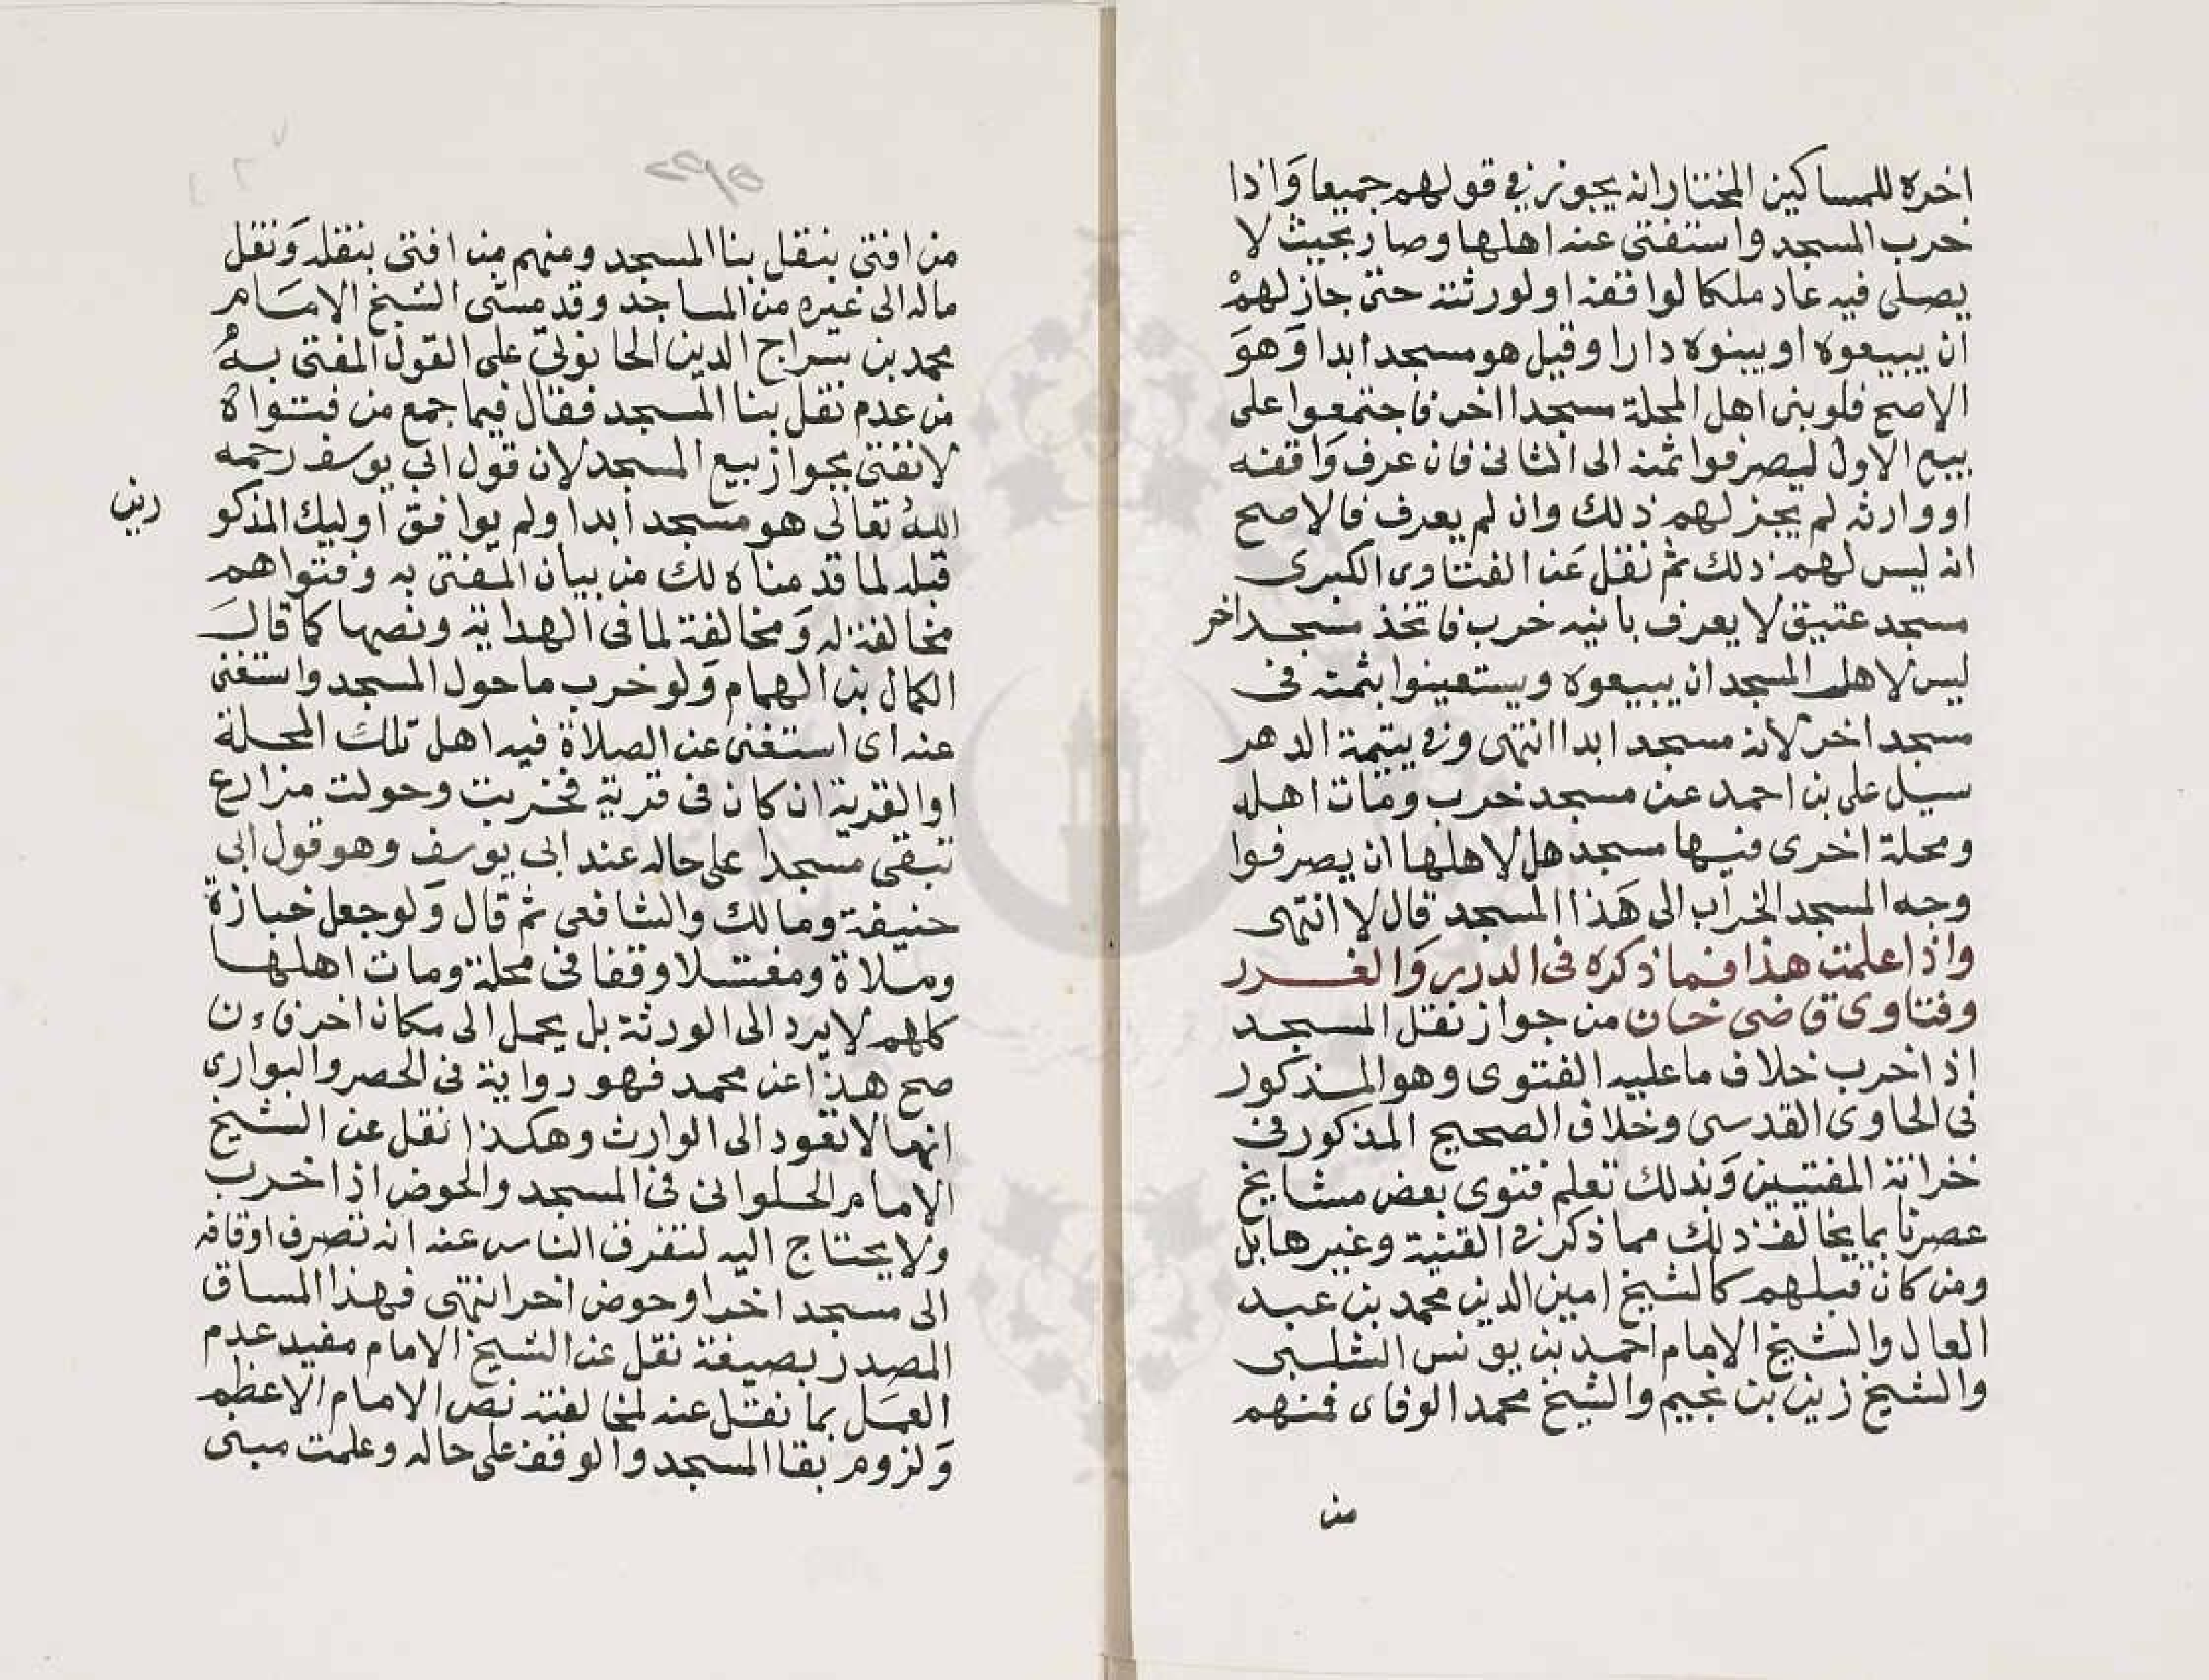 اخره للمساكين المختار انه يجوز في قولهم جميعا وَاذا
خرب المسجد واستغنى عنه اهلها وصار بحيث لا
يصلى فيه عاد ملكا لواقفه او لورثته حتى جاز لهمْ
ان يبيعوه او يبنوه دارا وقيل هو مسجد ابدا وَهوَ
الاصح فلو بنى اهل المحلة مسجدا اخر فاجتمعوا على
بيع الاول ليصرفوا ثمنه الى الثانى فان عرف وَاقفه
او وارثه لم يجز لهم ذلك وان لم يعرف فالاصح
انه ليس لهم ذلك ثم نقل عَن الفتاوى الكبرى
مسجد عتيق لا يعرف بانيه خرب فاتخذ مسجد اخر
ليس لاهل المسجد ان يبيعوه ويستعينوا بثمنه فى
مسجد اخر لانه مسجد ابدا انتهى وفي يتيمة الدهر
سيل على بن احمد عن مسجد خرب ومات اهله
ومحلة اخرى فيها مسجد هل لاهلها ان يصرفوا
وجه المسجد الخراب الى هَذا المسجد قال لا انتهى
واذا علمت هذا فما ذكره فى الدرر وَالغرر
وفتاوى قاضى خان من جواز نقل المسجد
اذا خرب خلاف ما عليه الفتوى وهو المذكور
فى الحاوى القدسى وخلاف الصحيح المذكور فى
خزانة المفتيين وَبذلك تعلم فتوى بعض مشايخ
عصرنا بما يخالف ذلك مما ذكر في القنية وغيرها بل
ومن كان قبلهم كالشيخ امين الدين محمد بن عبد
العال والشيخ الامام احمد بن يونس الشلبى
والشيخ زين بن نجيم والشيخ محمد الوفاى فمنهم
من
من افتى بنقل بنا المسجد ومنهم من افتى بنقله وَنقل
ماله الى غيره من المساجد وقد مشى الشيخ الامَام
محمد بن سراج الدين الحانوتى على القول المفتى بهُ
من عدم نقل بنا المسجد فقال فيما جمع من فتواه
لا نفتى بجواز بيع المسجد لان قول ابى يوسف رحمه
اللهُ تعالى هو مسجد ابدا ولم يوافق اوليك المذكو
رين
قبله لما قدمناه لك من بيان المفتى به وفتواهم
مخالفة له وَمخالفة لما فى الهداية ونصها كما قالَ
الكمال بن الهمام وَلو خرب ما حول المسجد واستغنى
عنه اى استغنى عن الصلاة فيه اهل تلك المحلة
او القرية ان كان فى قرية فخربت وحولت مزارع
تبقى مسجدا على حاله عند ابى يوسف وهو قول ابى
حنيفة ومالك والشافعى ثم قال وَلو جعل خبازة
وملاة ومغتسلا وقفا فى محلة ومات اهلها
كلهم لا يرد الى الورثة بل يحمل الى مكان اخر فان
صح هذا عن محمد فهو رواية فى الحصر والبوارى
انها لا تعود الى الوارث وهكذا نقل عن الشيخ
الامام الحلوانى فى المسجد والحوض اذا خرب
ولا يحتاج اليه لتفرق الناس عنه انه تصرف اوقافه
الى مسجد اخر او حوض اخر انتهى فهذا المساق
المصدر بصيغة نقل عن الشيخ الامام مفيد عدم
العمَل بما نقل عنه لمخالفته نص الامام الاعظم
وَلزوم بقا المسجد والوقف على حاله وعلمت مبنى